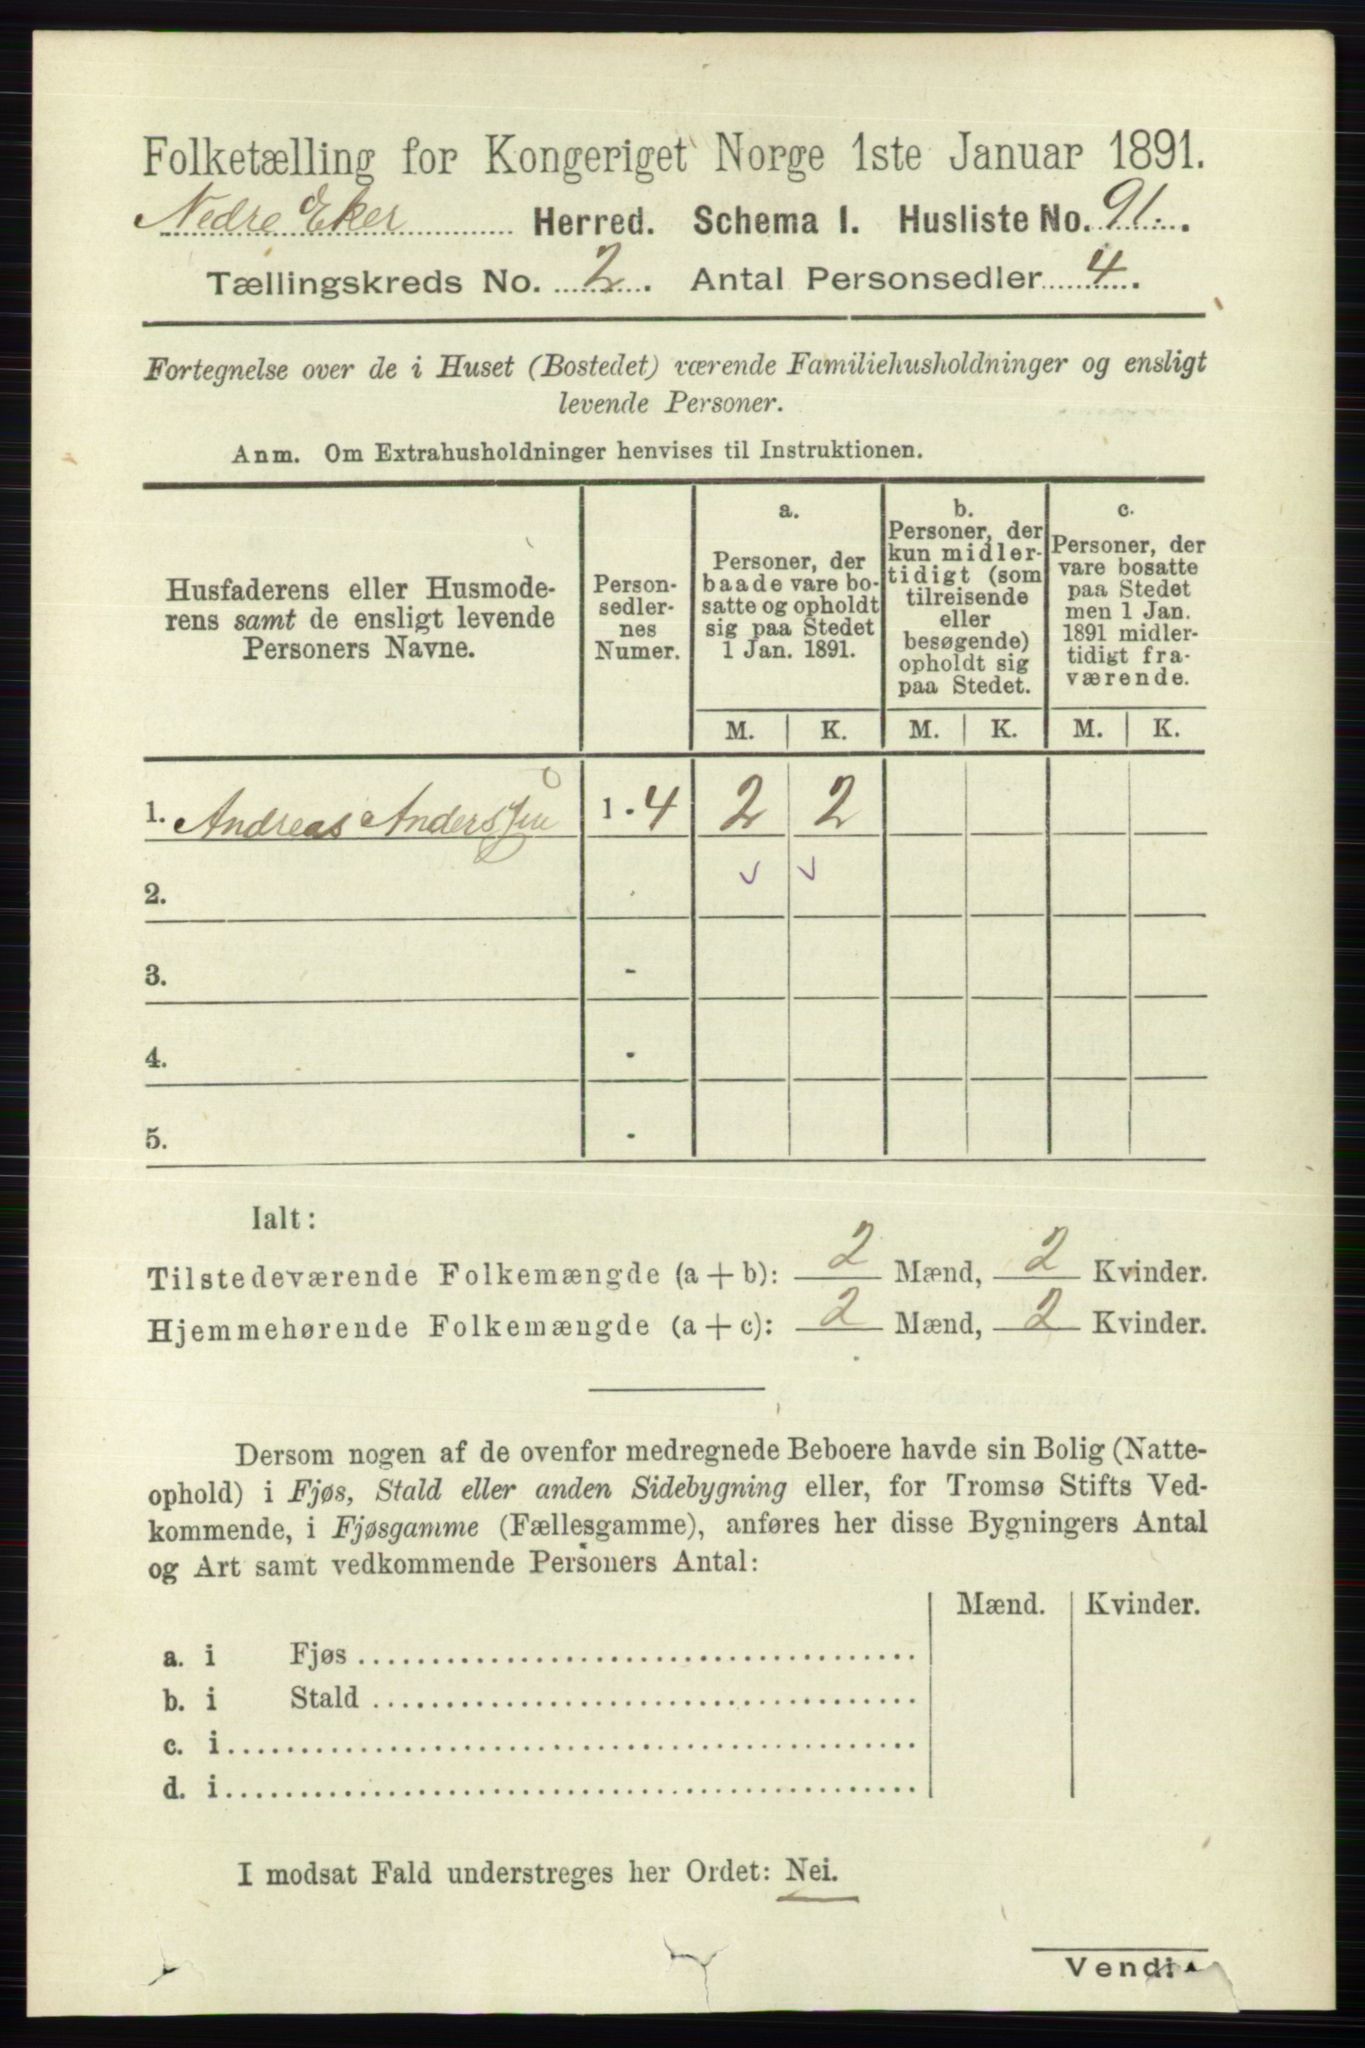 Folketælling for Kongeriget Norge 1ste Januar 1891.
Nedre Eker Herred. Schema I. Husliste No. 91.
Tællingskreds No. 2. Antal Personsedler 4.
Fortegnelse over de i Huset (Bostedet) værende Familiehusholdninger og ensligt
levende Personer.
Anm. Om Extrahusholdninger henvises til Instruktionen.
Husfaderens eller Husmode-
rens samt de ensligt levende
Personers Navne.
Person-
sedler-
nes
Numer.
a.
Personer, der
baade vare bo-
satte og opholdt
sig paa Stedet
1 Jan. 1891.
b.
Personer, der
kun midler-
tidigt (som
tilreisende
eller
besøgende)
opholdt sig
paa Stedet.
c.
Personer, der
vare bosatte
paa Stedet
men 1 Jan.
1891 midler-
tidigt fra-
værende.
M. K. M. K. M. K.
1. Andreas Anderssen 1 - 4 2 2
2.
3. -
4. -
5. -
Ialt:
Tilstedeværende Folkemængde (a + b): 2 Mænd, 2 Kvinder.
Hjemmehørende Folkemængde (a + c): 2 Mænd, 2 Kvinder.
Dersom nogen af de ovenfor medregnede Beboere havde sin Bolig (Natte-
ophold) i Fjøs, Stald eller anden Sidebygning eller, for Tromsø Stifts Ved-
kommende, i Fjøsgamme (Fællesgamme), anføres her disse Bygningers Antal
og Art samt vedkommende Personers Antal:
Mænd. Kvinder.
a. i Fjøs
b. i Stald
c. i
d. i
I modsat Fald understreges her Ordet: Nei.
Vendi